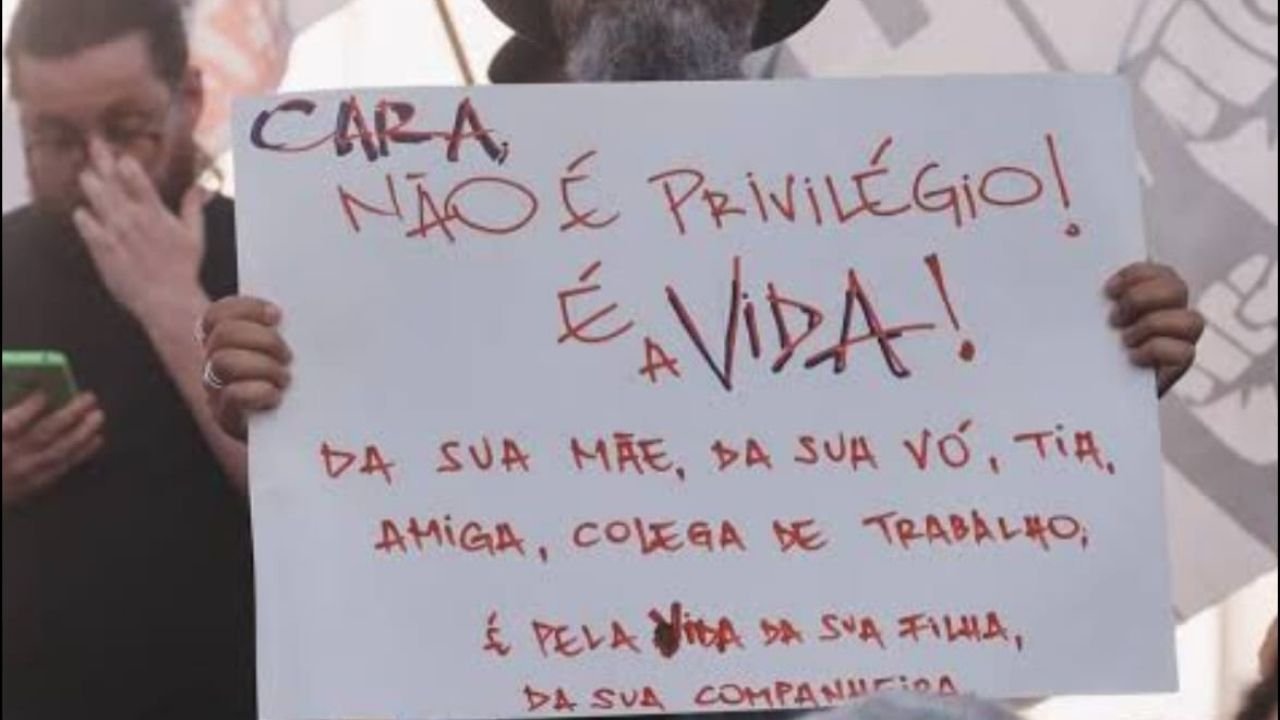 CARA,
NÃO É PRIVILÉGIO!
É A VIDA!
DA SUA MÃE, DA SUA VÓ, TIA,
AMIGA, COLEGA DE TRABALHO,
É PELA VIDA DA SUA FILHA,
DA SUA COMPANHEIRA